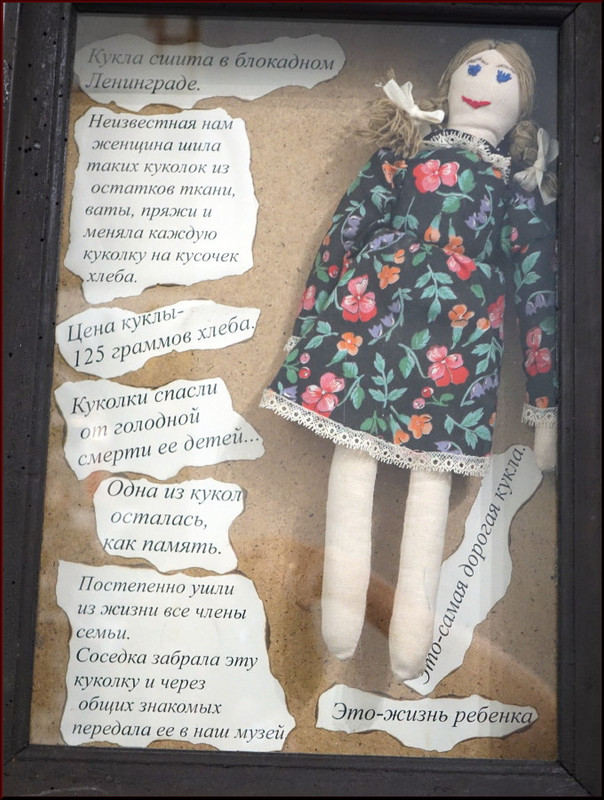 Кукла сшита в блокадном
Ленинграде.
Неизвестная нам
женщина шила
таких куколок из
остатков ткани,
ваты, пряжи и
меняла каждую
куколку на кусочек
хлеба.
Цена куклы-
125 граммов хлеба.
Куколки спасли
от голодной
смерти ее детей...
Одна из кукол
осталась,
как память.
Постепенно ушли
из жизни все члены
семьи.
Соседка забрала эту
куколку и через
общих знакомых
передала ее в наш музей
Это-самая дорогая кукла.
Это-жизнь ребенка